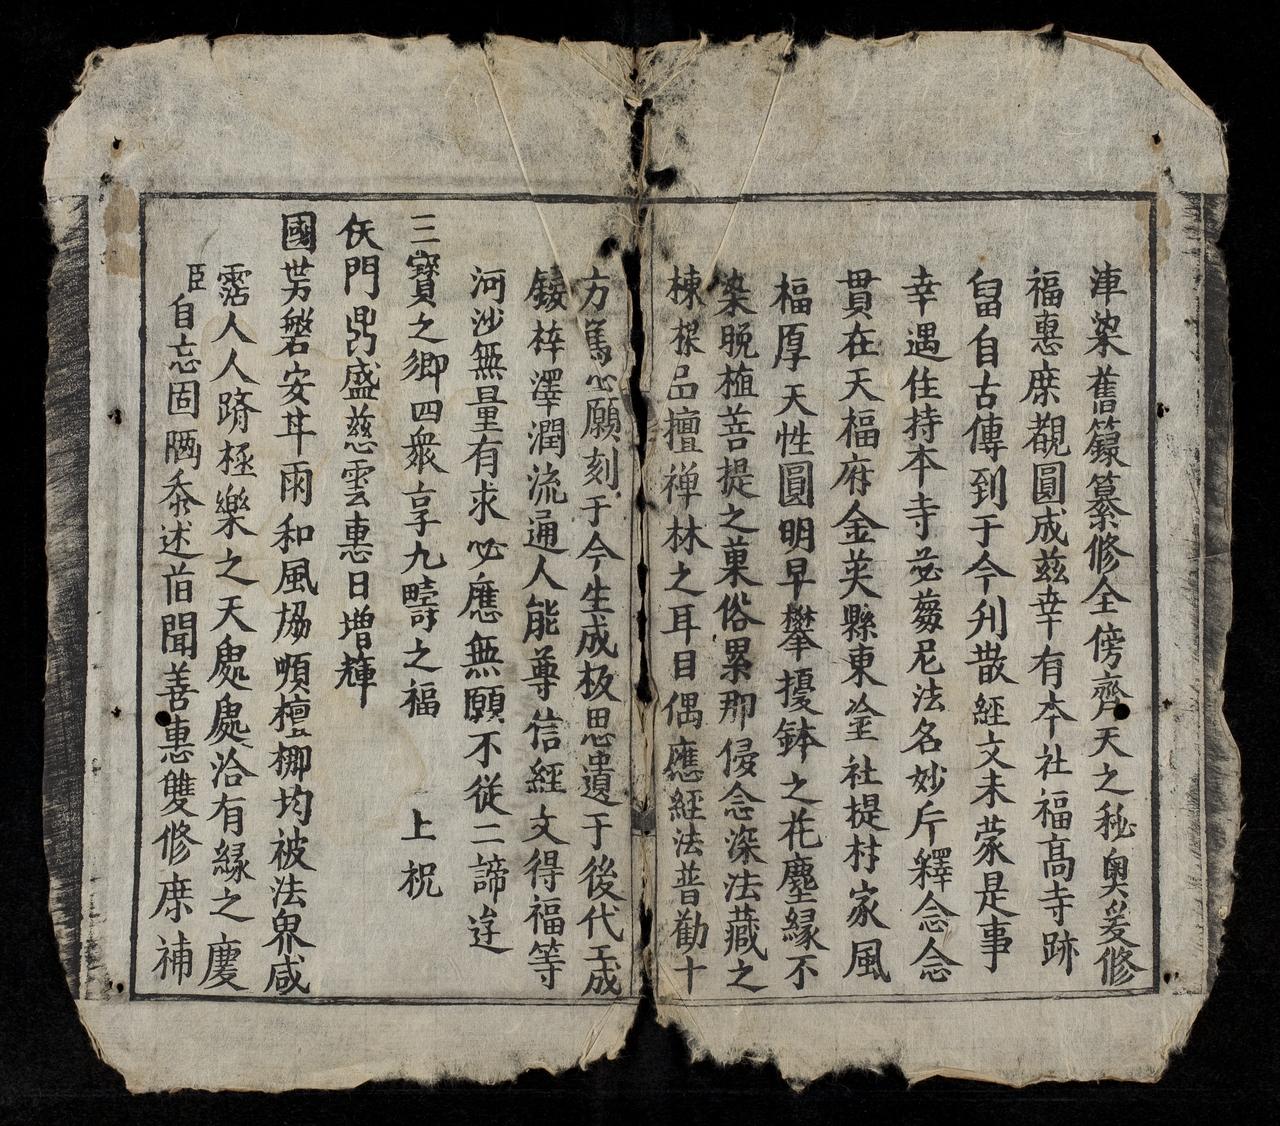 津梁舊籙纂修全傍齊天之秘奧爰修
福惠庶觀圓成兹幸有夲社福髙寺跡
留自古傳到于今刋散経文未蒙是事
幸遇住持夲寺苾蒭尼法名妙斤釋念念
貫在天福府金英縣東塗社提村家風
福厚天性圓明早攀擾鉢之花塵縁不
染晚植菩提之菓俗累那侵念深法藏之
棟樑品擅禅林之耳目偶應経法普勸十
方篤心願刻于今生成板思遺于後代工成
鋟梓澤潤流通人能尊信經文得福等
河沙無量有求必應無願不従二諦逹
三寳之鄉四衆享九疇之福　上祝
仸門鼎盛慈雲惠日增輝
國势磐安𠀋雨和風協順檀挪均被法界咸
霑人人躋極樂之天處處洽有縁之慶
臣自忘固陋忝述莤聞善惠雙修庶補